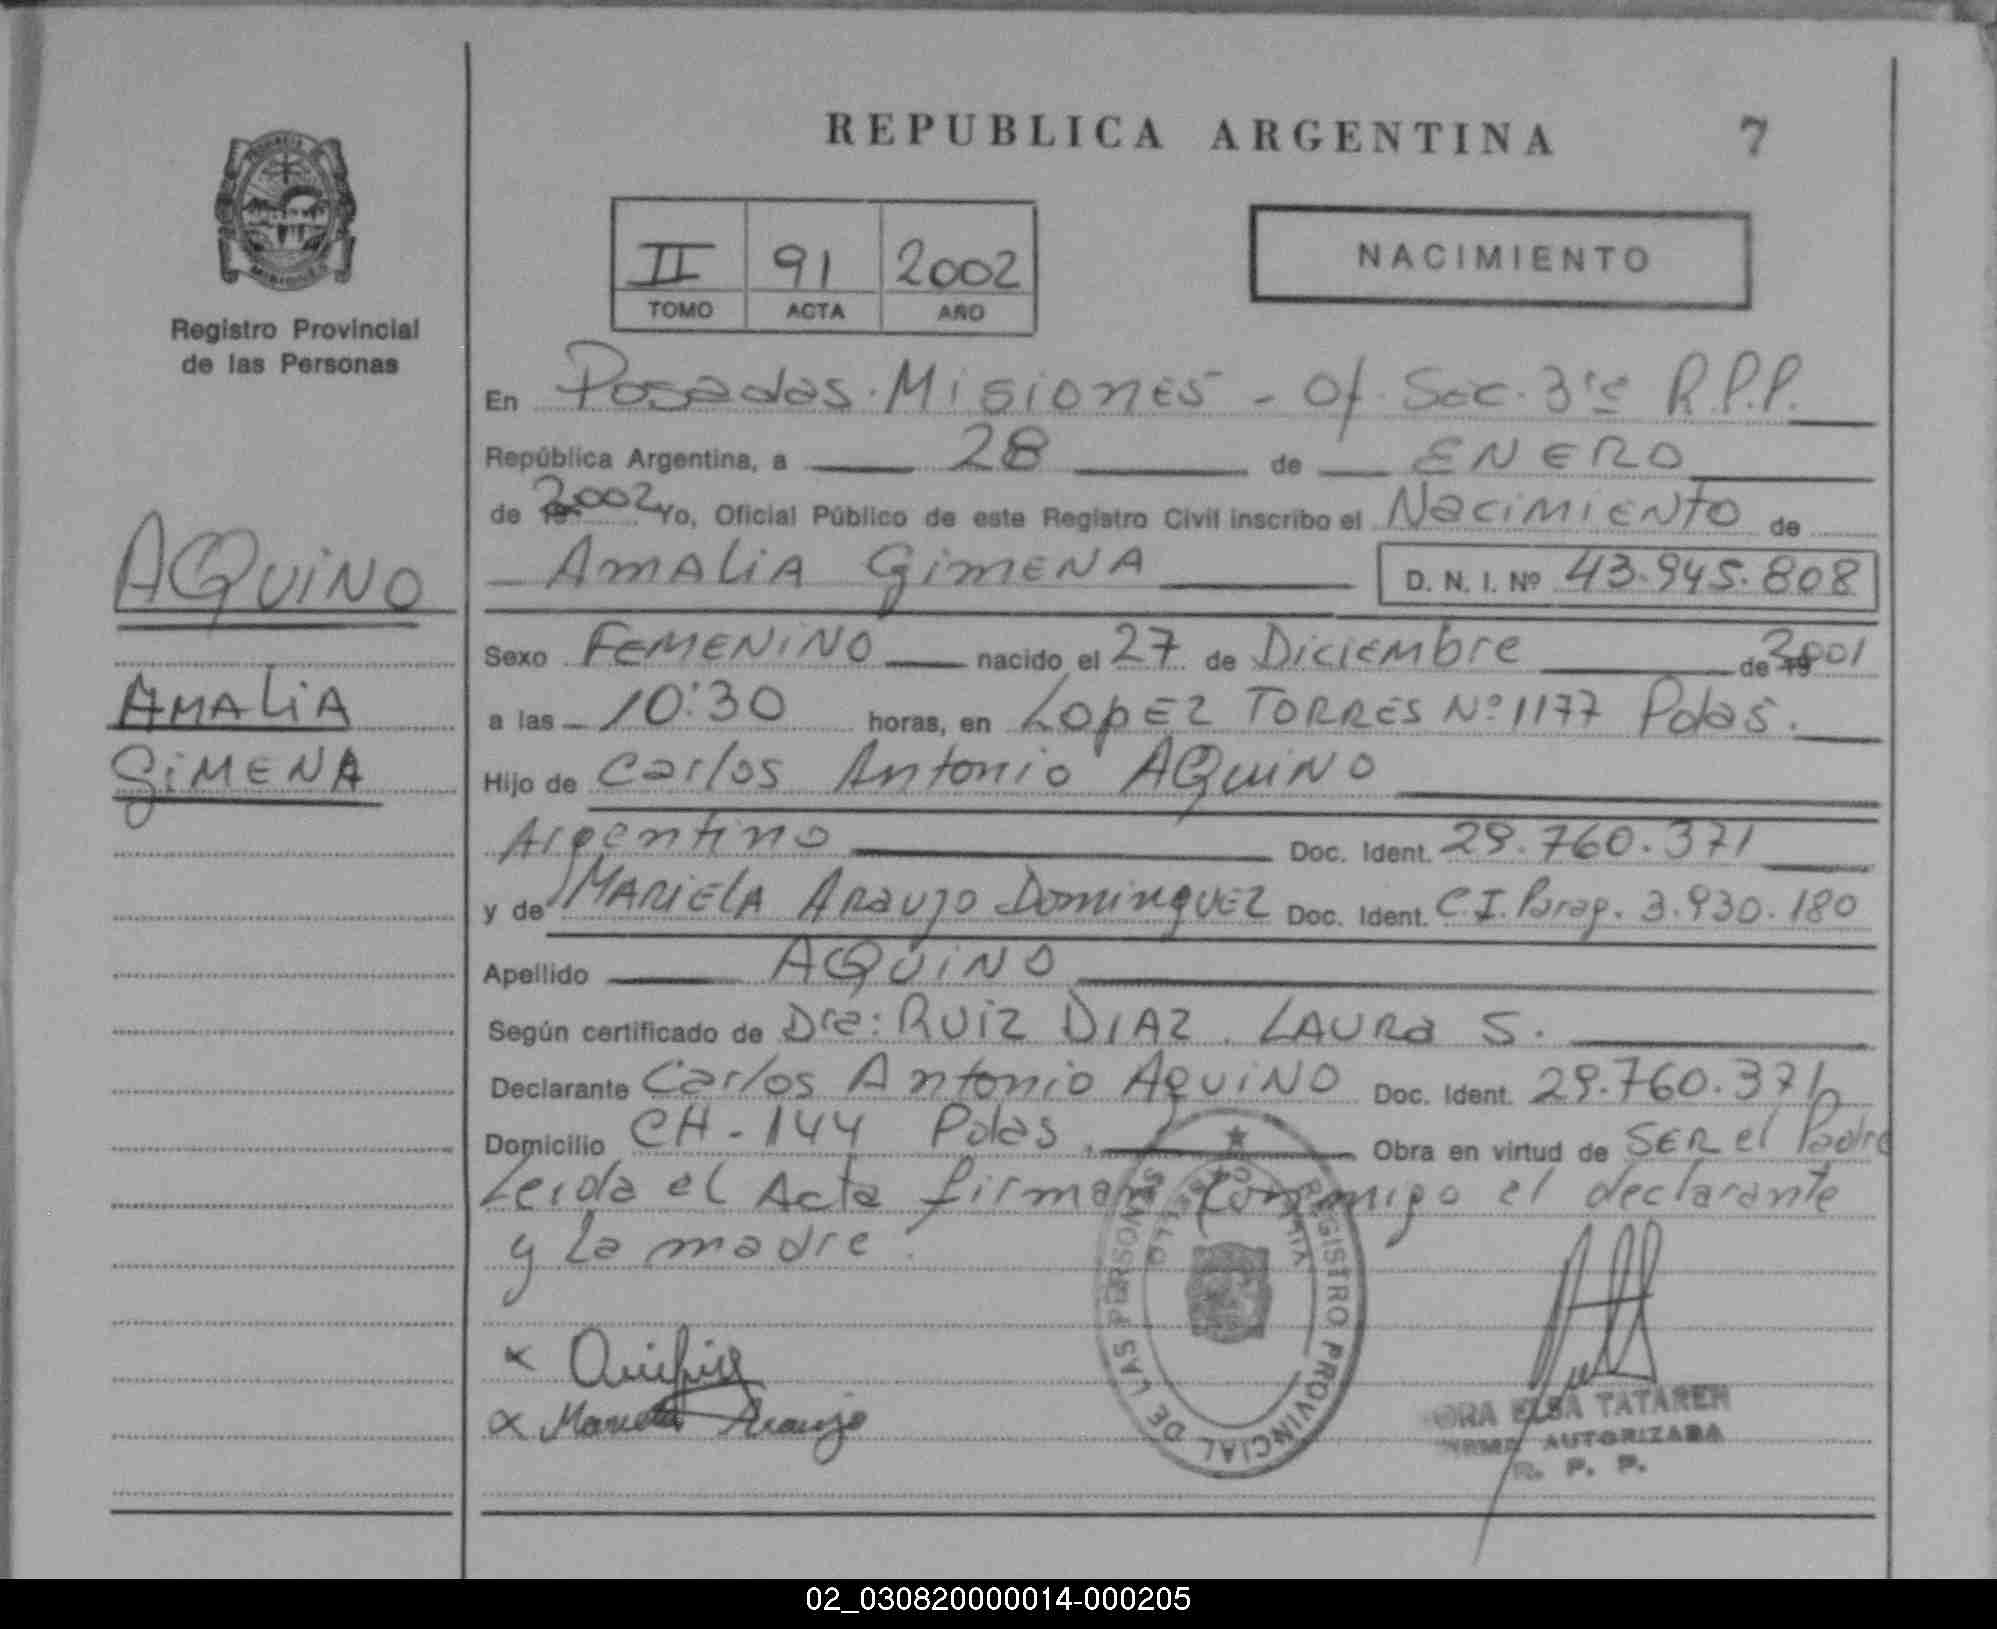 REPUBLICA ARGENTINA 7
Registro Provincial
de las Personas
II 91 2002
TOMO ACTA AÑO
NACIMIENTO
AQUINO
AMALIA
GIMENA
En Posadas. Misiones - Of. Sec. 3ra R.P.P.
República Argentina, a 28 de ENERO
de 2002 Yo, Oficial Público de este Registro Civil inscribo el Nacimiento de
AMALIA GIMENA D. N. I. Nº 43.945.808
Sexo FEMENINO nacido el 27 de Diciembre de 2001
a las 10:30 horas, en Lopez TORRES Nº 1177 Pdas.
Hijo de Carlos Antonio AQUINO
Argentino Doc. Ident. 29.760.371
y de MARIELA ARAUJO Dominguez Doc. Ident. C.I. Parag. 3.930.180
Apellido AQUINO
Según certificado de Dra: RUIZ DIAZ. LAURA S.
Declarante Carlos Antonio AQUINO Doc. Ident. 29.760.371
Domicilio CH-144 Pdas. Obra en virtud de SER el Padre
Leida el Acta firman conmigo el declarante
y la madre.
REGISTRO PROVINCIAL DE LAS PERSONAS
x
x Mariela Araujo
ELSA TATAREN
FIRMA AUTORIZADA
R. P. P.
02_030820000014-000205